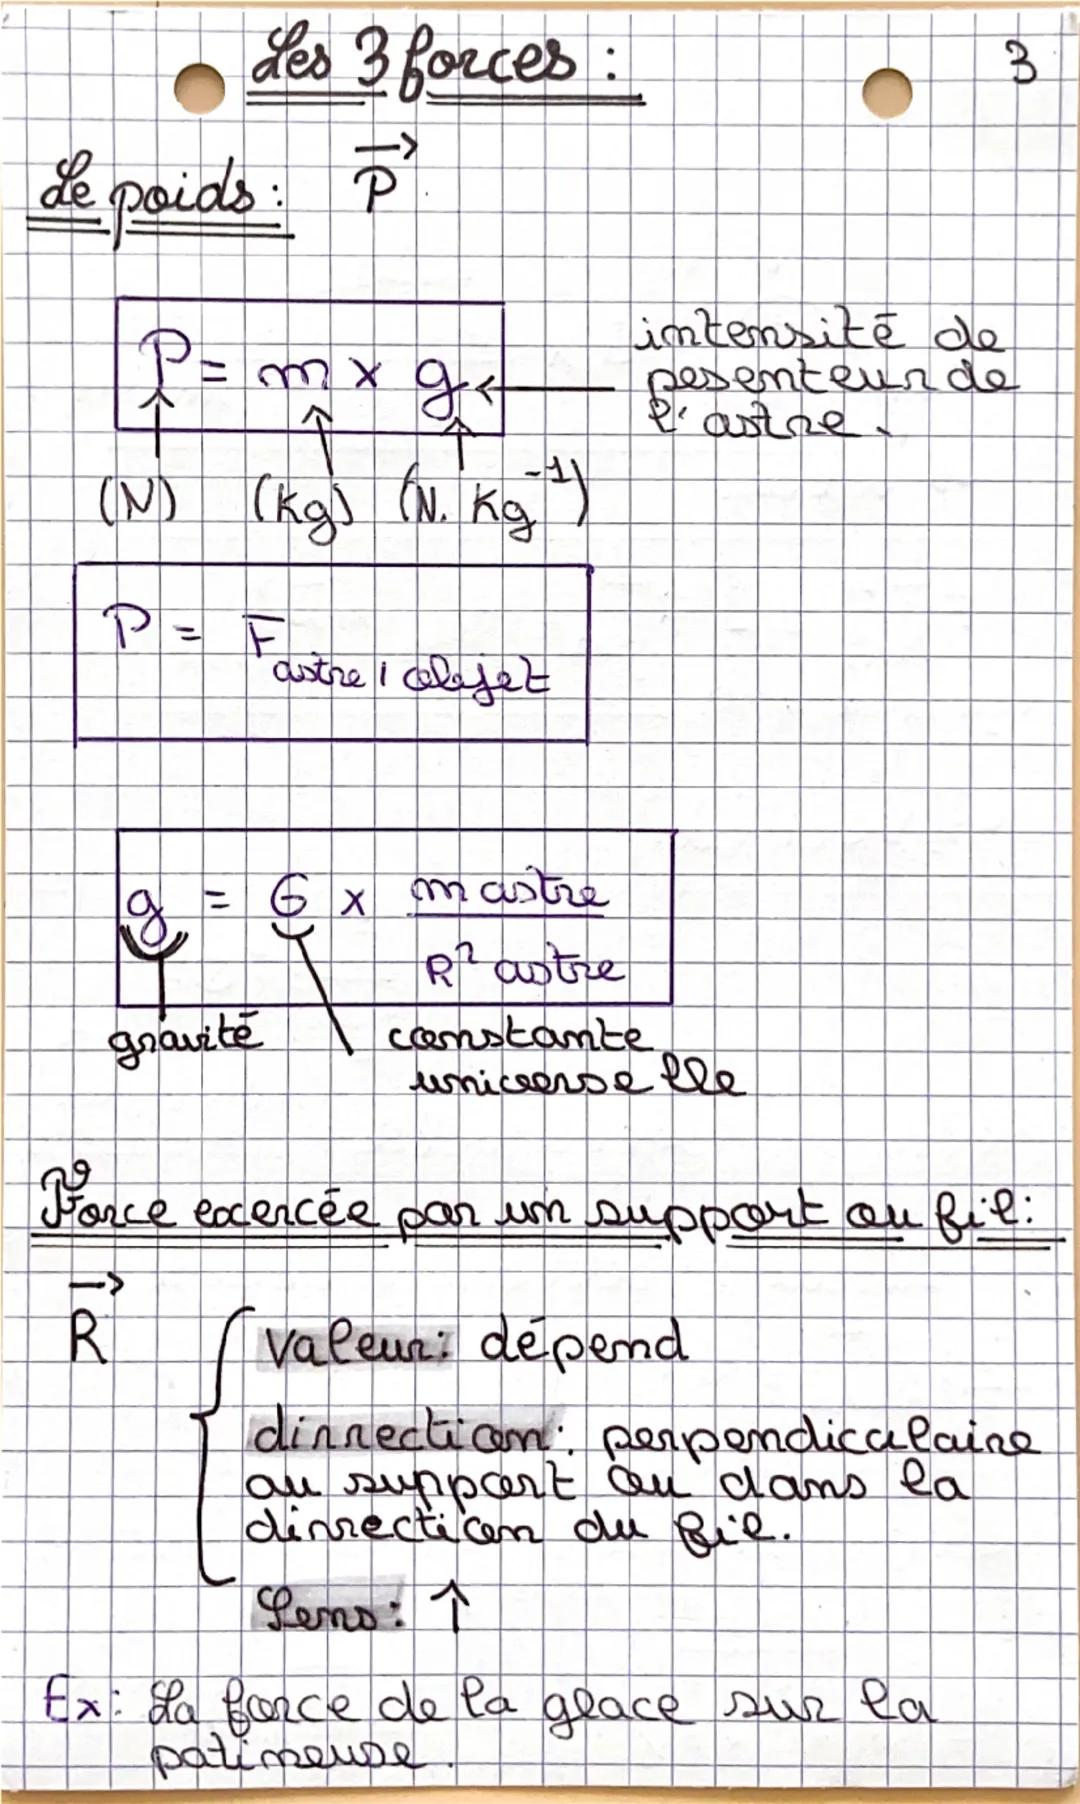 Les 3 forces :
3
Le poids : P
P = m x g
intensité de
pesenteur de
l'astre.
(N) (Kg) (N. Kg⁻¹)
P = F astre / objet
g = G x m astre
R² astre
gravité
constante
universelle
Force exercée par un support ou fil :
R
Valeur : dépend
dirrection : perpendiculaire
au support ou dans la
dirrection du fil.
Sens : ↑
Ex : La force de la glace sur la
patineuse.